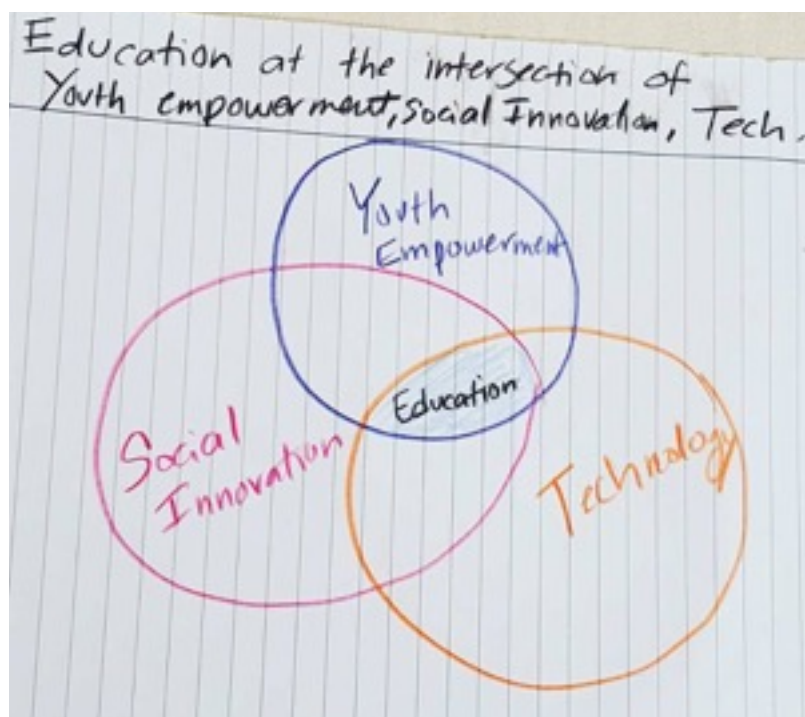 Education at the intersection of
Youth empowerment, Social Innovation, Tech.
Youth
Empowerment
Education
Social
Innovation
Technology